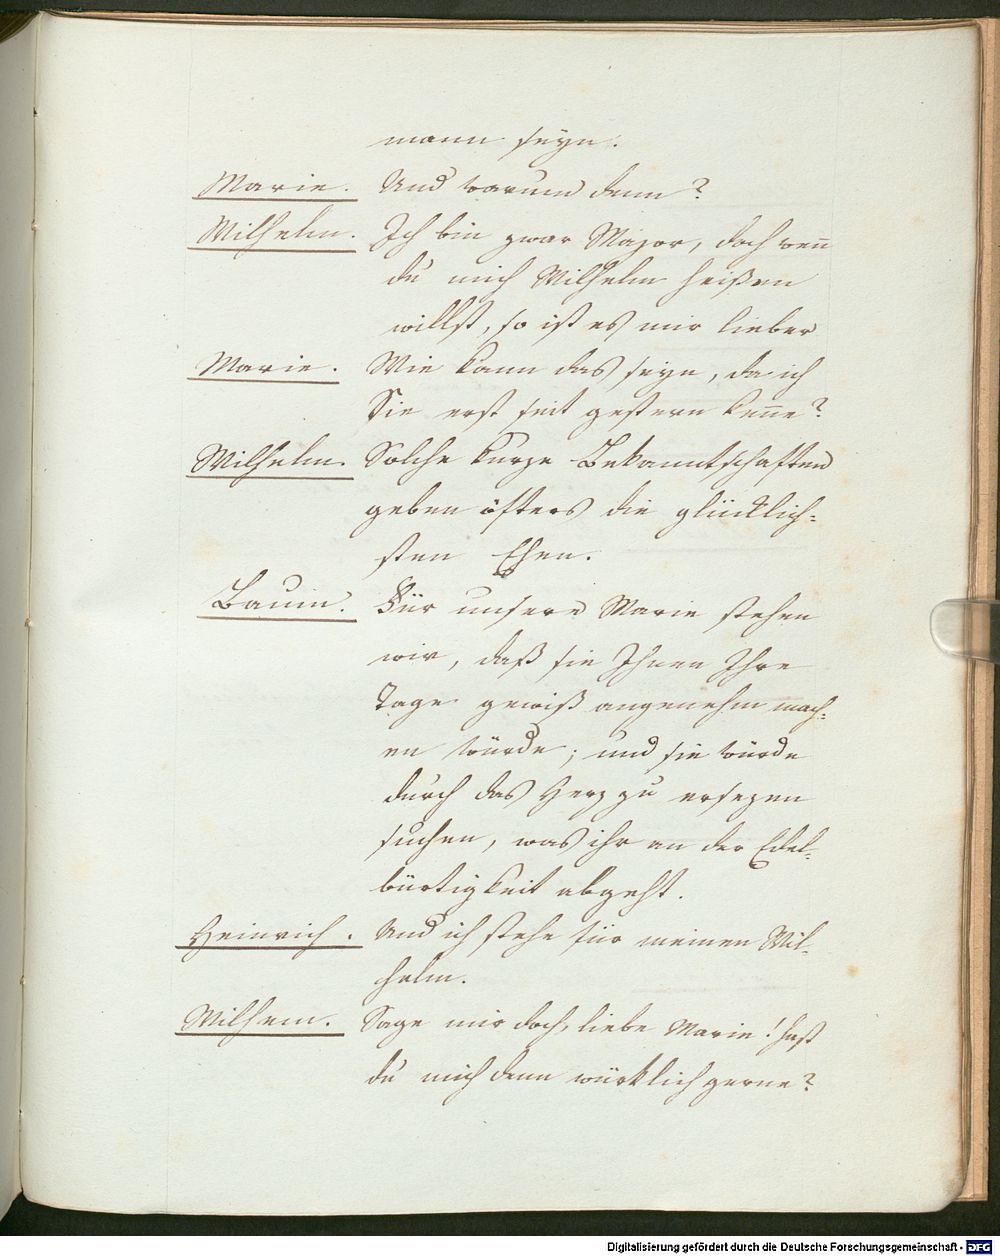 mann seyn.
Marie. Und warum denn?
Wilhelm. Ich bin zwar Major, doch weñ
du mich Wilhelm heißen
willst, so ist es mir lieber
Marie. Wie kann das seyn, da ich
Sie erst seit gestern keñe?
Wilhelm. Solche kurze Bekanntschaften
geben öfters die glücklich-
sten Ehen.
Bauin. Für unsere Marie stehen
wir, daß sie Ihnen Ihre
Tage gewiß angenehm mach-
en würde; und sie würde
durch das Herz zu ersezen
suchen, was ihr an der Edel-
bürtigkeit abgeht.
Heinrich. Und ich stehe für meinen Wil-
helm.
Wilhem. Sage mir doch, liebe Marie! hast
du mich denn würklich gerne?
Digitalisierung gefördert durch die Deutsche Forschungsgemeinschaft - DFG